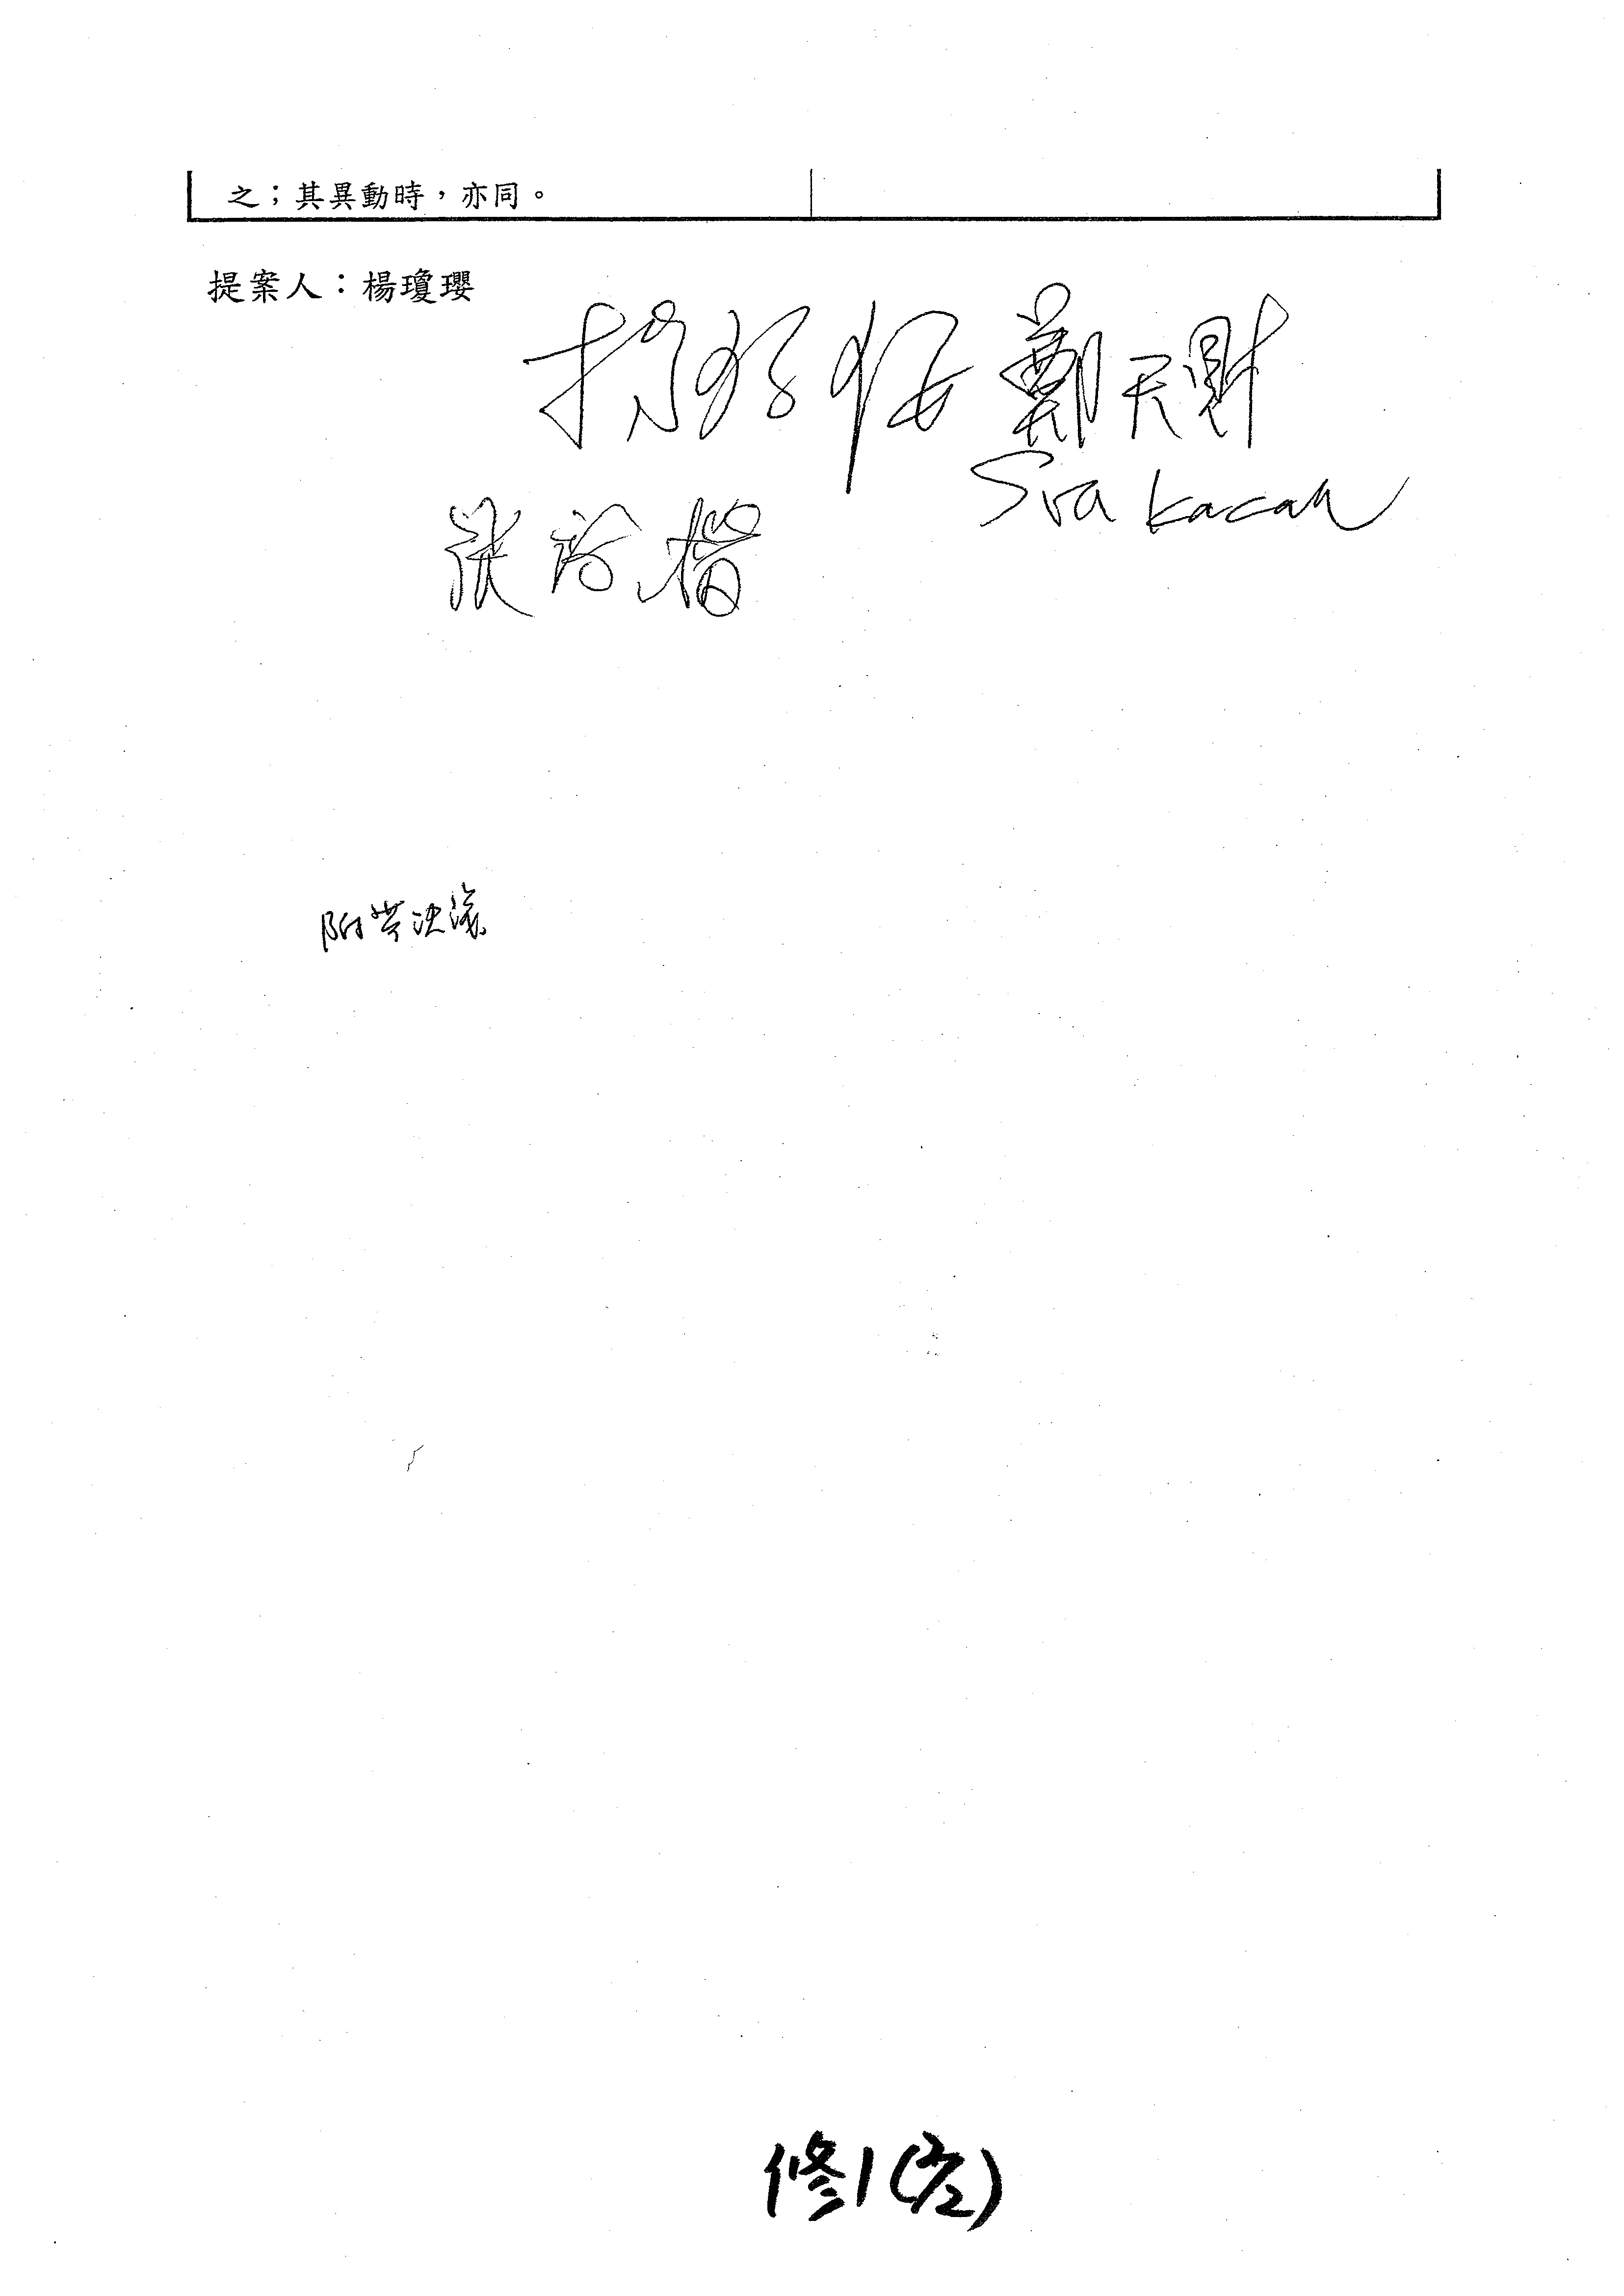 之；其異動時，亦同。
提案人：楊瓊瓔
楊瓊瓔 鄭天財
Sra Kacaw
張啓楷
附帶決議
修1(2/2)